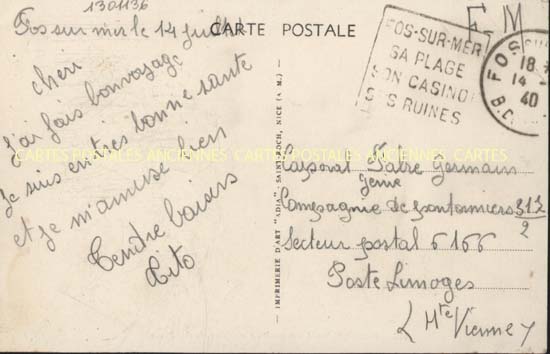 1301136
Fos sur mer le 14 juillet
CARTE POSTALE
F. M
FOS-SUR-MER
SA PLAGE
SON CASINO
SES RUINES
FOS
18
14
40
B.
cheri
J'ai fais bon voyage
Je suis en très bonne santé
et je m'amuse bien
Tendre baisers
Lito
CARTES POSTALES ANCIENNES CARTES POSTALES ANCIENNES CARTES
IMPRIMERIE D'ART "ADIA" - SAINT-ROCH, NICE (A. M.)
Caporal Fabre Germain
Genie
Compagnie de pontonniers 317/2
Secteur postal 6166
Poste Limoges
(Hte Vienne)